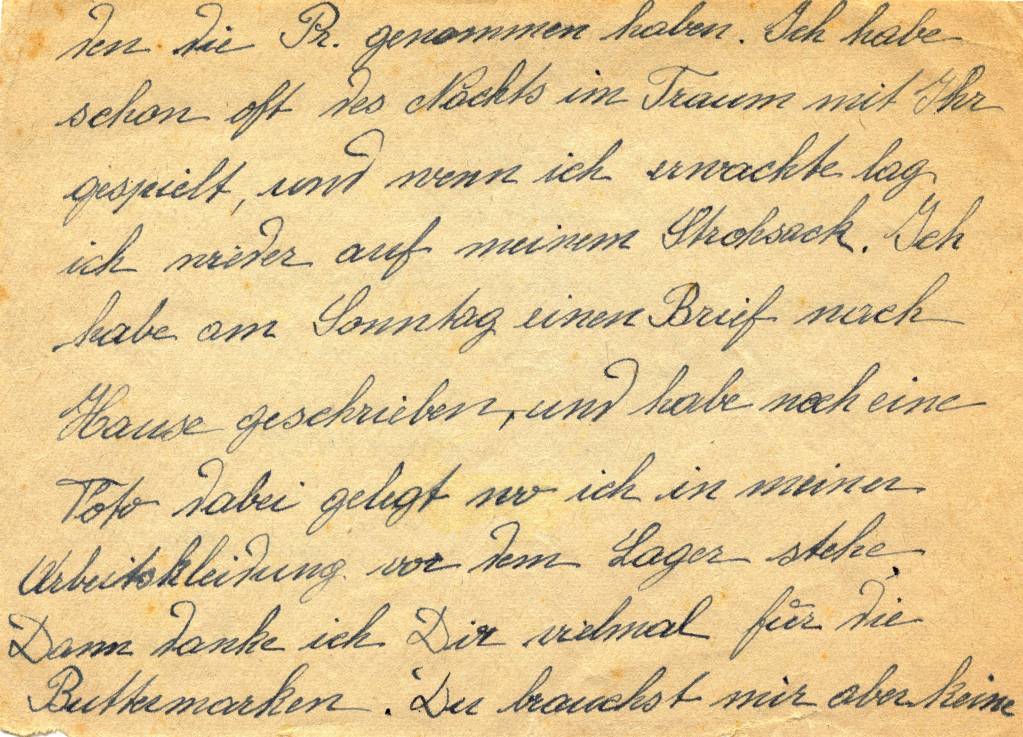 den die Pr. genommen haben. Ich habe
schon oft des Nachts im Traum mit Ihr
gespielt, und wenn ich erwachte lag
ich wieder auf meinem Strohsack. Ich
habe am Sonntag einen Brief nach
Hause geschrieben, und habe noch eine
Foto dabei gelegt wo ich in meiner
Arbeitskleidung vor dem Lager stehe.
Dann danke ich Dir vielmal für die
Buttermarken. Du brauchst mir aber keine